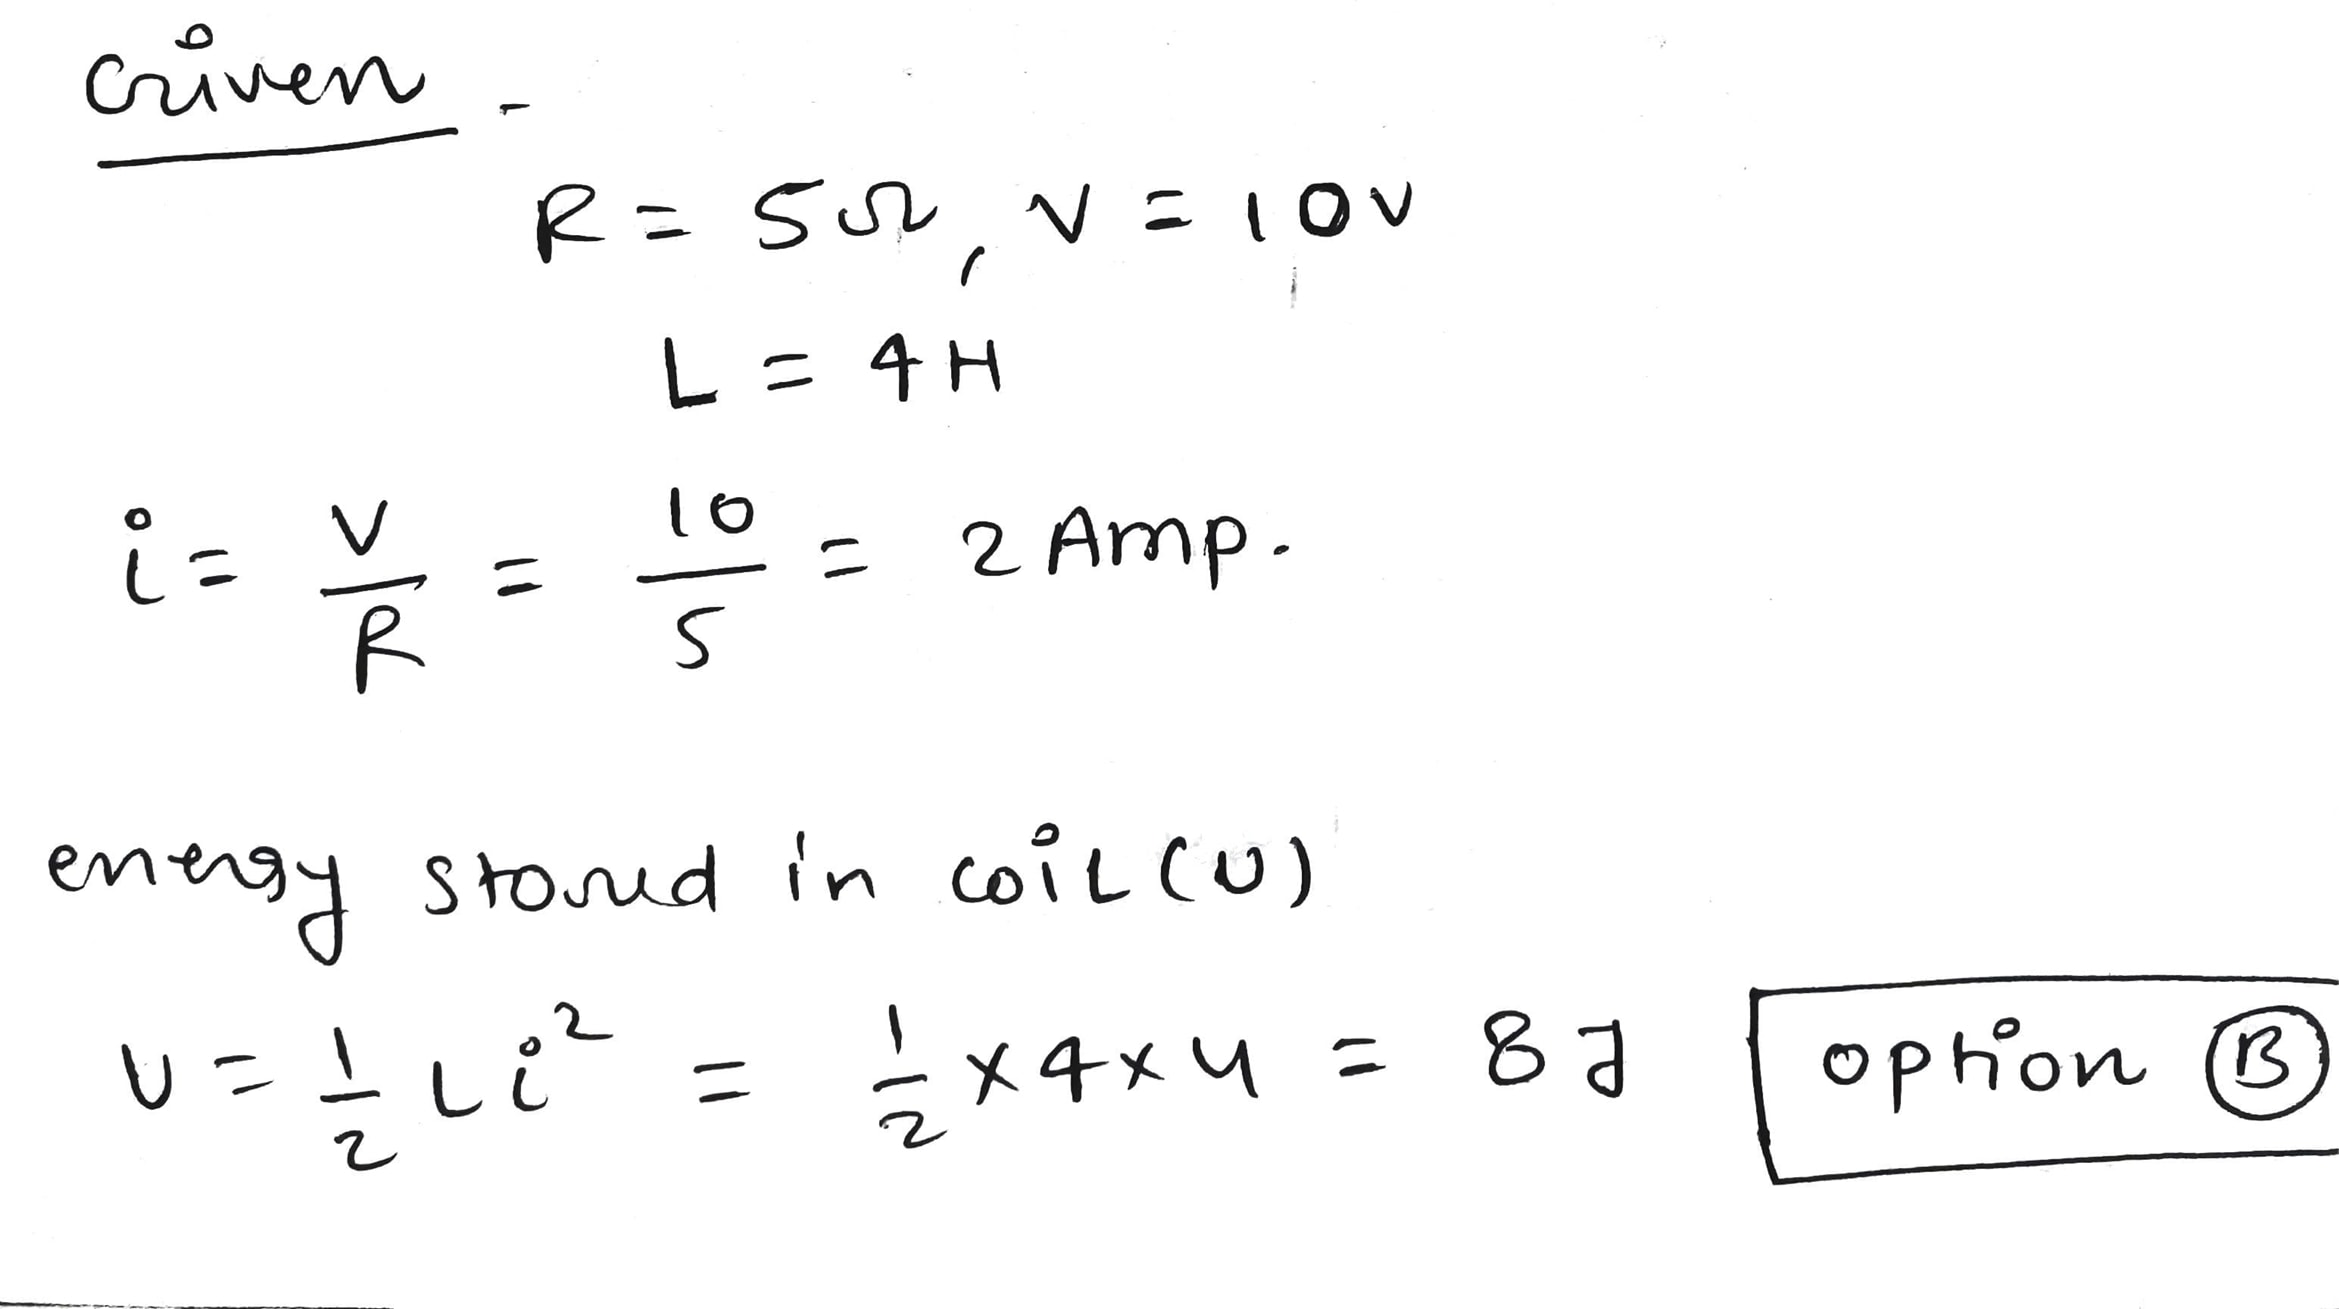 Given -
R = 5Ω, V = 10V
L = 4H
i = V/R = 10/5 = 2 Amp.
energy stored in coil (U)
U = 1/2 Li² = 1/2 × 4 × 4 = 8J
option B